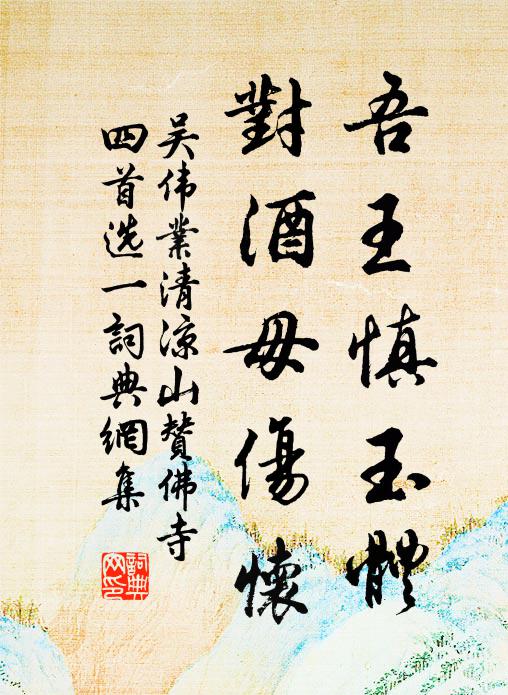 吾王慎玉體
對酒毋傷懷
吴伟業清凉山賛佛寺
四首选一詞典網集
詞典网印